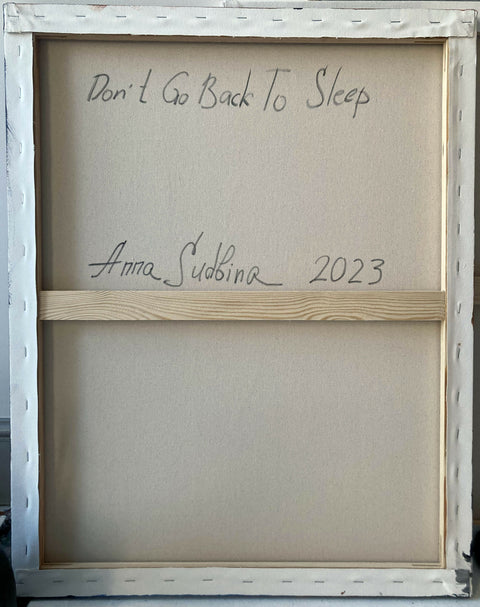 Don't Go Back To Sleep
Anna Sudbina 2023